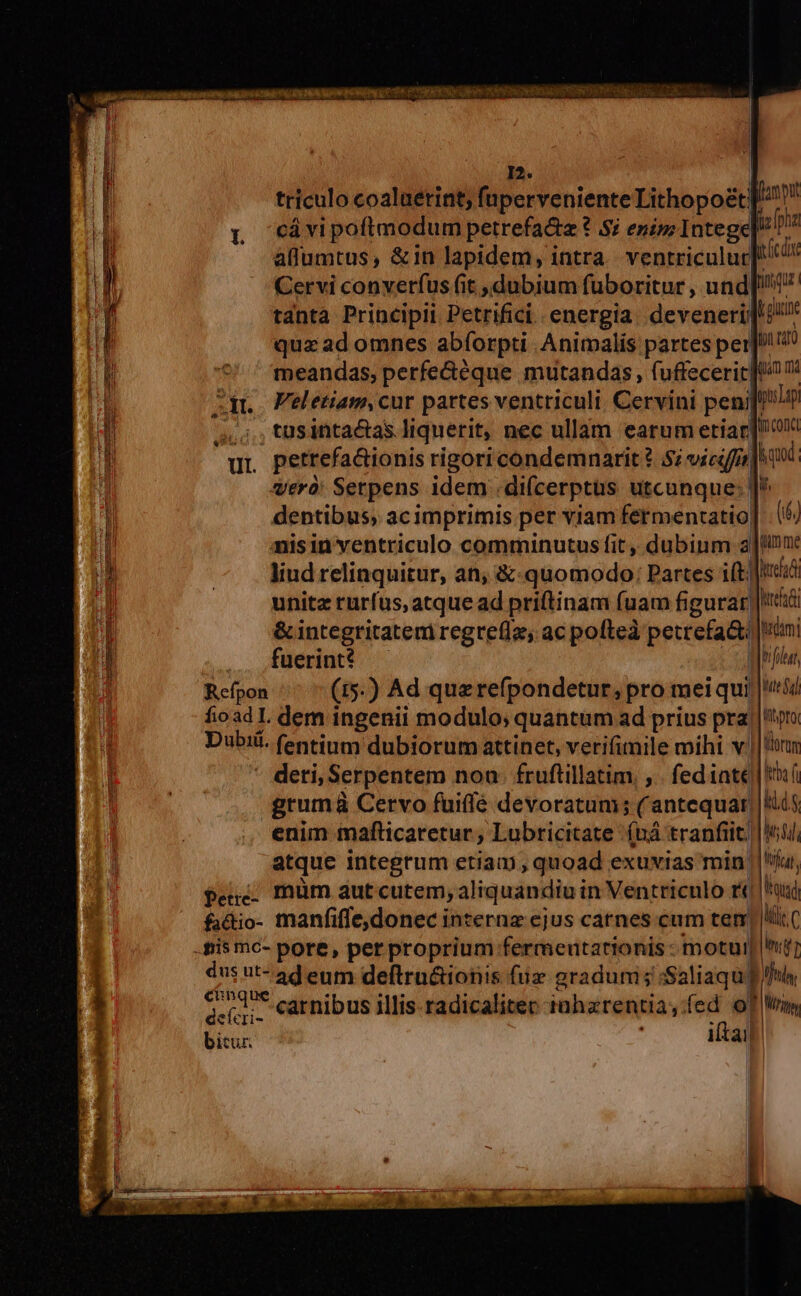 12.
triculo coaluerint, ſuperveniente Lithopoët
I. cá vi poſtmodum petrefactæ? Si enim Intege
aſſumtus, & in lapidem, intra ventriculu
Cervi converſus ſit, dubium ſuboritur, und
tanta Principii Petrifici energia deveneri
quæ ad omnes abſorpti Animalis partes per
meandas, perfectèque mutandas, ſuffecerit
II. Vel etiam, cur partes ventriculi Cervini peni
tus intactas liquerit, nec ullam earum etia
III. petrefactionis rigori condemnarit? Si viciſſi
verò Serpens idem diſcerptus utcunque
dentibus, ac imprimis per viam fermentatio
nis in ventriculo comminutus ſit, dubium a
liud relinquitur, an, & quomodo Partes iſt
unitæ rurſus, atque ad priſtinam ſuam figura
& integritatem regreſſæ, ac poſteà petrefact
fuerint?
Reſpon (15.) Ad quæ reſpondetur, pro mei qui
ſio ad I. dem ingenii modulo, quantum ad prius præ
Dubiũ. ſentium dubiorum attinet, veriſimile mihi v
deri, Serpentem non fruſtillatim, ſed inte
grum à Cervo fuiſſe devoratum; (antequa
enim maſticaretur, Lubricitate ſuá tranſiit
atque integrum etiam, quoad exuvias min
Petre- mùm aut cutem, aliquandiu in Ventriculo r
factio- manſiſſe, donec internæ ejus carnes cum tem
nis mo- pore, per proprium fermentationis motu
dus ut- ad eum deſtructionis ſuæ gradum; Saliaqu
cunque carnibus illis radicaliter inhærentia, ſed
deſcri-
bitur. iſta